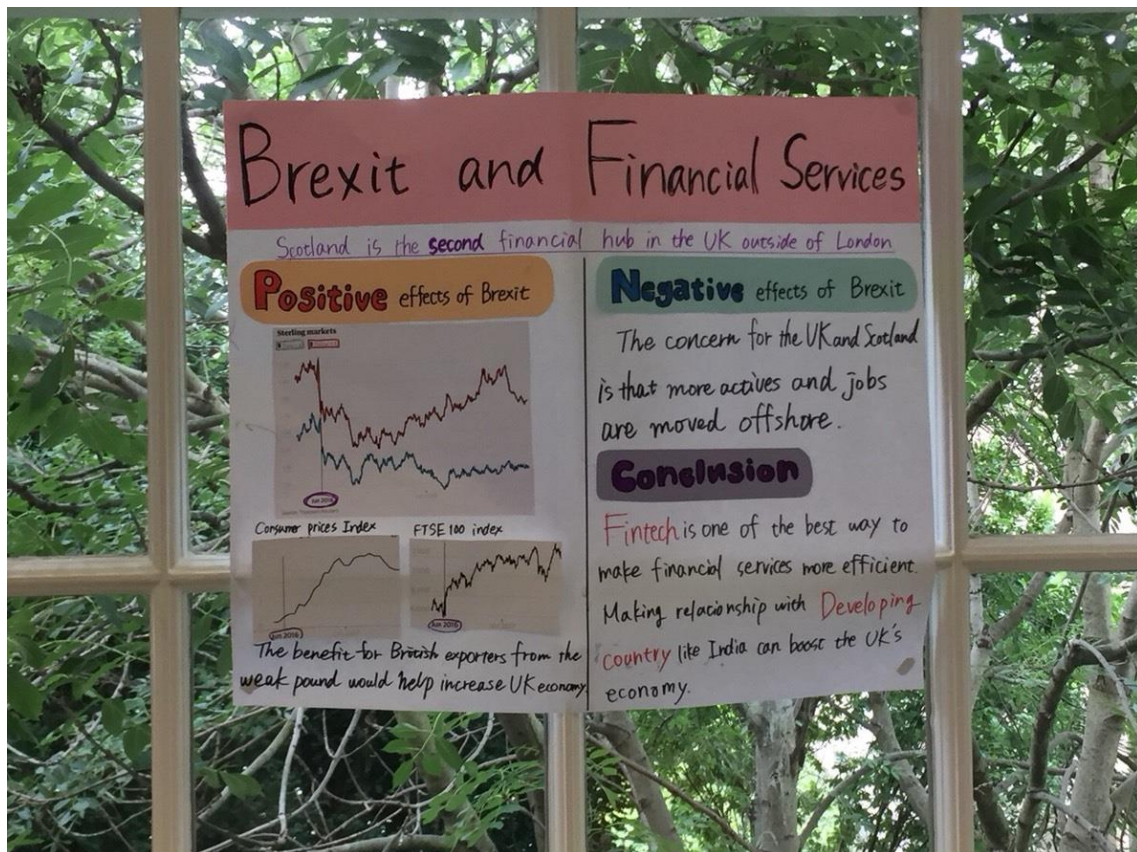 Brexit and Financial Services
Scotland is the second financial hub in the UK outside of London
Positive effects of Brexit
Sterling markets
Jun 2016
Consumer prices Index
FTSE 100 index
Jun 2016
Jun 2016
The benefit for British exporters from the
weak pound would help increase UK economy
Negative effects of Brexit
The concern for the UK and Scotland
is that more actives and jobs
are moved offshore.
Conclusion
Fintech is one of the best way to
make financial services more efficient.
Making relacionship with Developing
country like India can boost the UK's
economy.